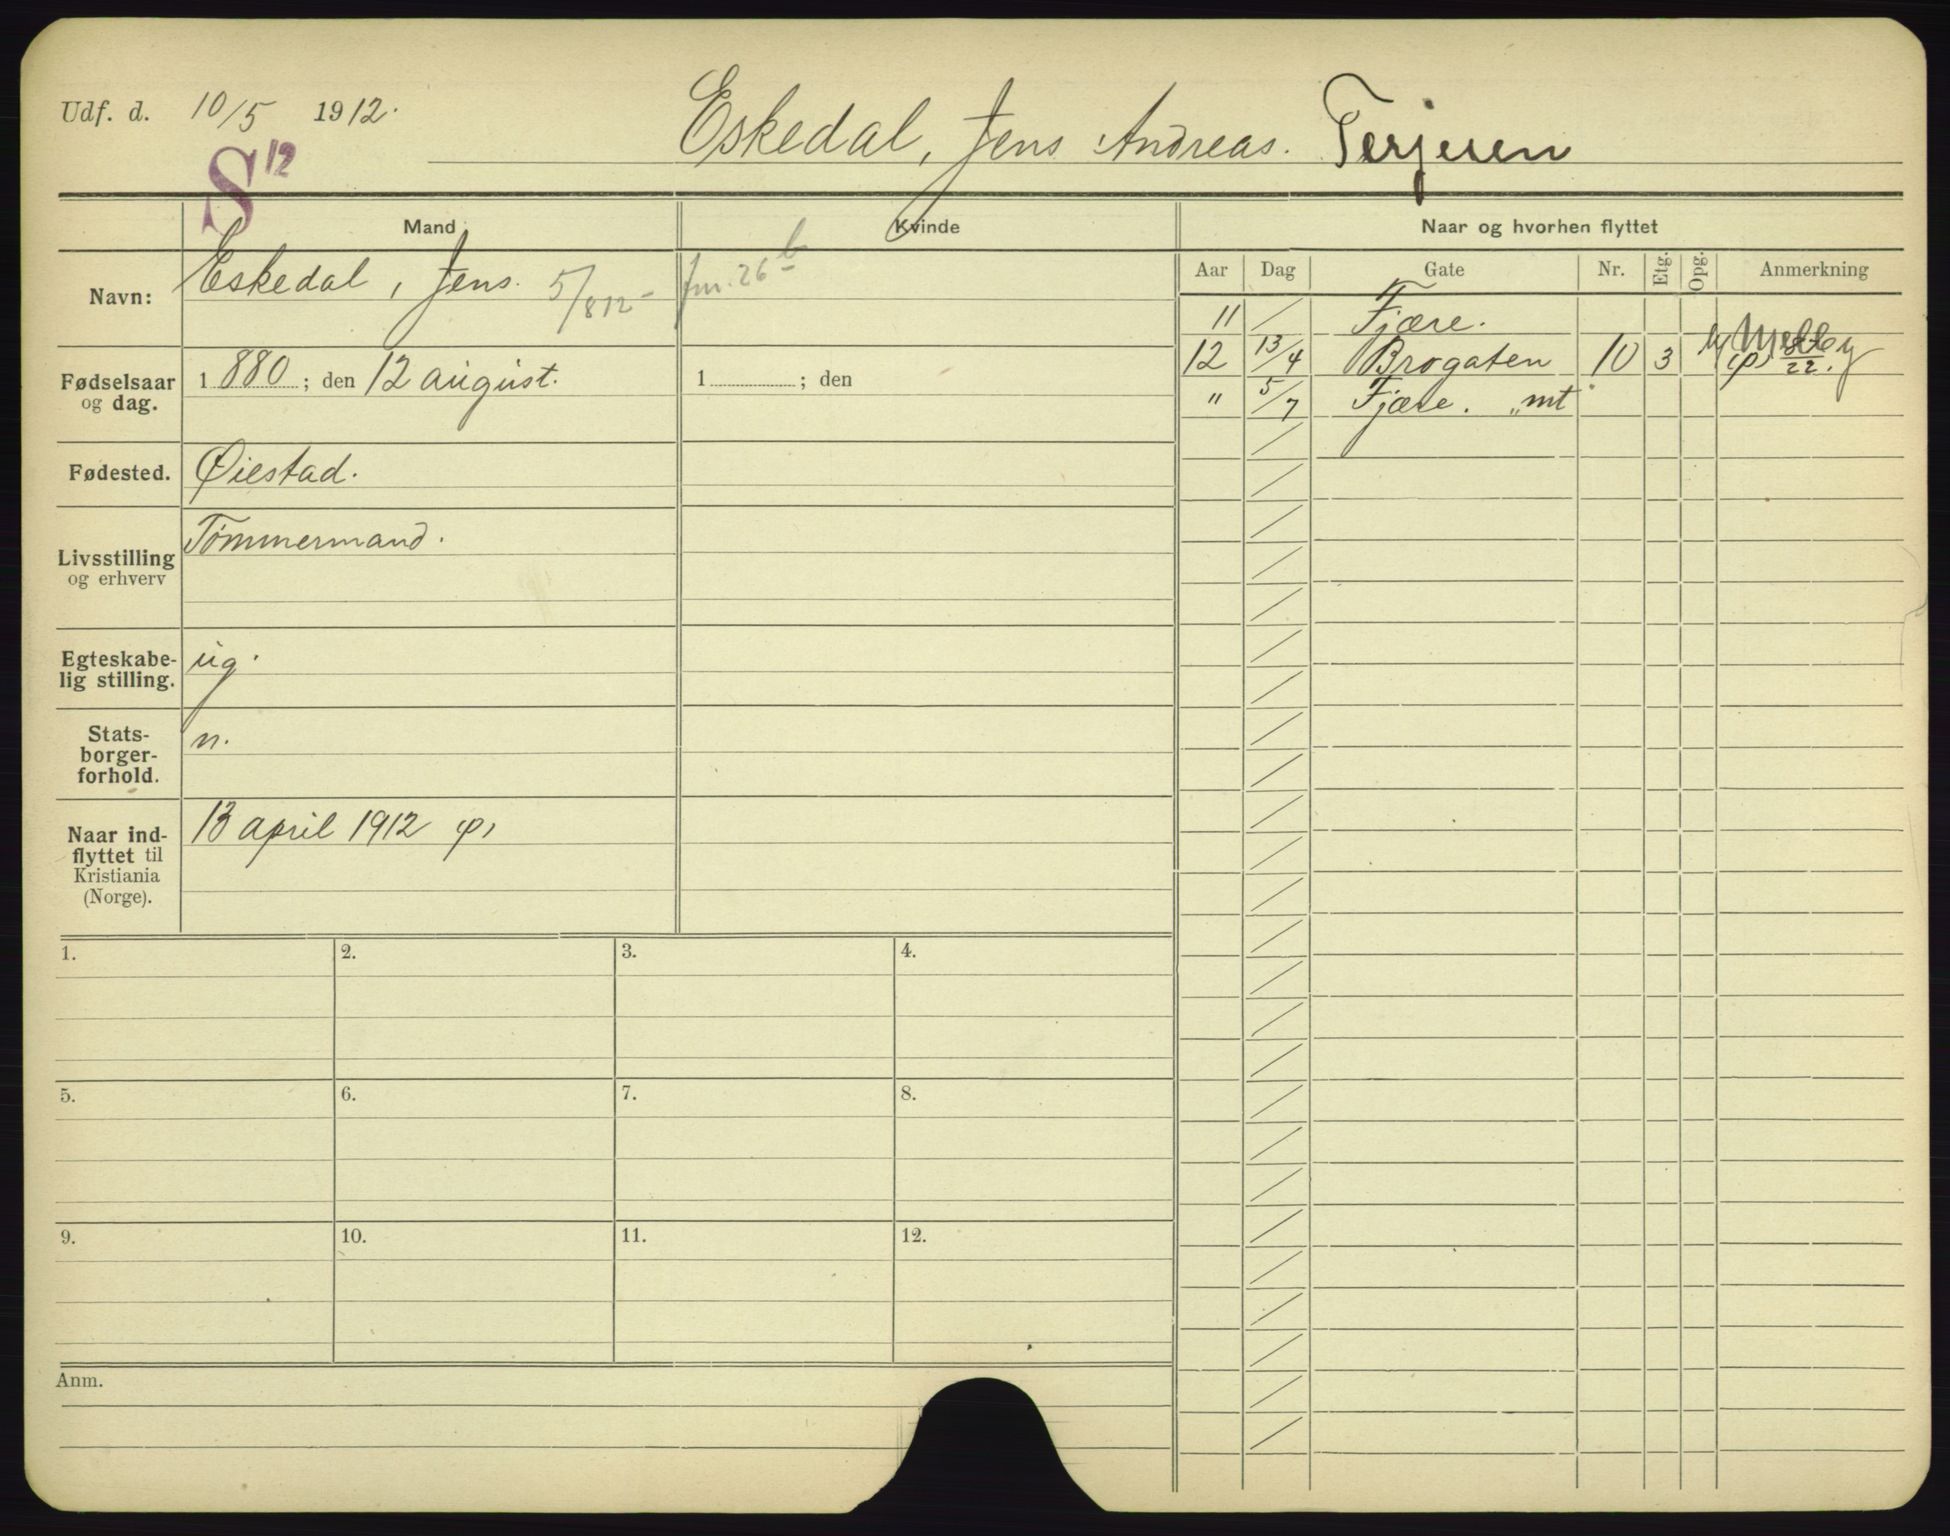 Udf. d. 10/5 1912.
Eskedal, Jens Andreas. Terjesen
S 12
Mand
Kvinde
Naar og hvorhen flyttet
Navn:
Eskedal, Jens. 5/8 12 - fm. 26 b
Fødselsaar
og dag.
1 880 ; den 12 august.
1 ; den
Fødested.
Øiestad.
Livsstilling
og erhverv
Tømmermand.
Egteskabe-
lig stilling.
ug.
Stats-
borger-
forhold.
n.
Naar ind-
flyttet til
Kristiania
(Norge).
13 april 1912 (p)
Aar Dag Gate Nr. Etg. Opg. Anmerkning
11 / Fjære.
12 13/4 Brogaten 10 3 (p)
" 5/7 Fjære. "mt"
1. 2. 3. 4.
5. 6. 7. 8.
9. 10. 11. 12.
Anm.